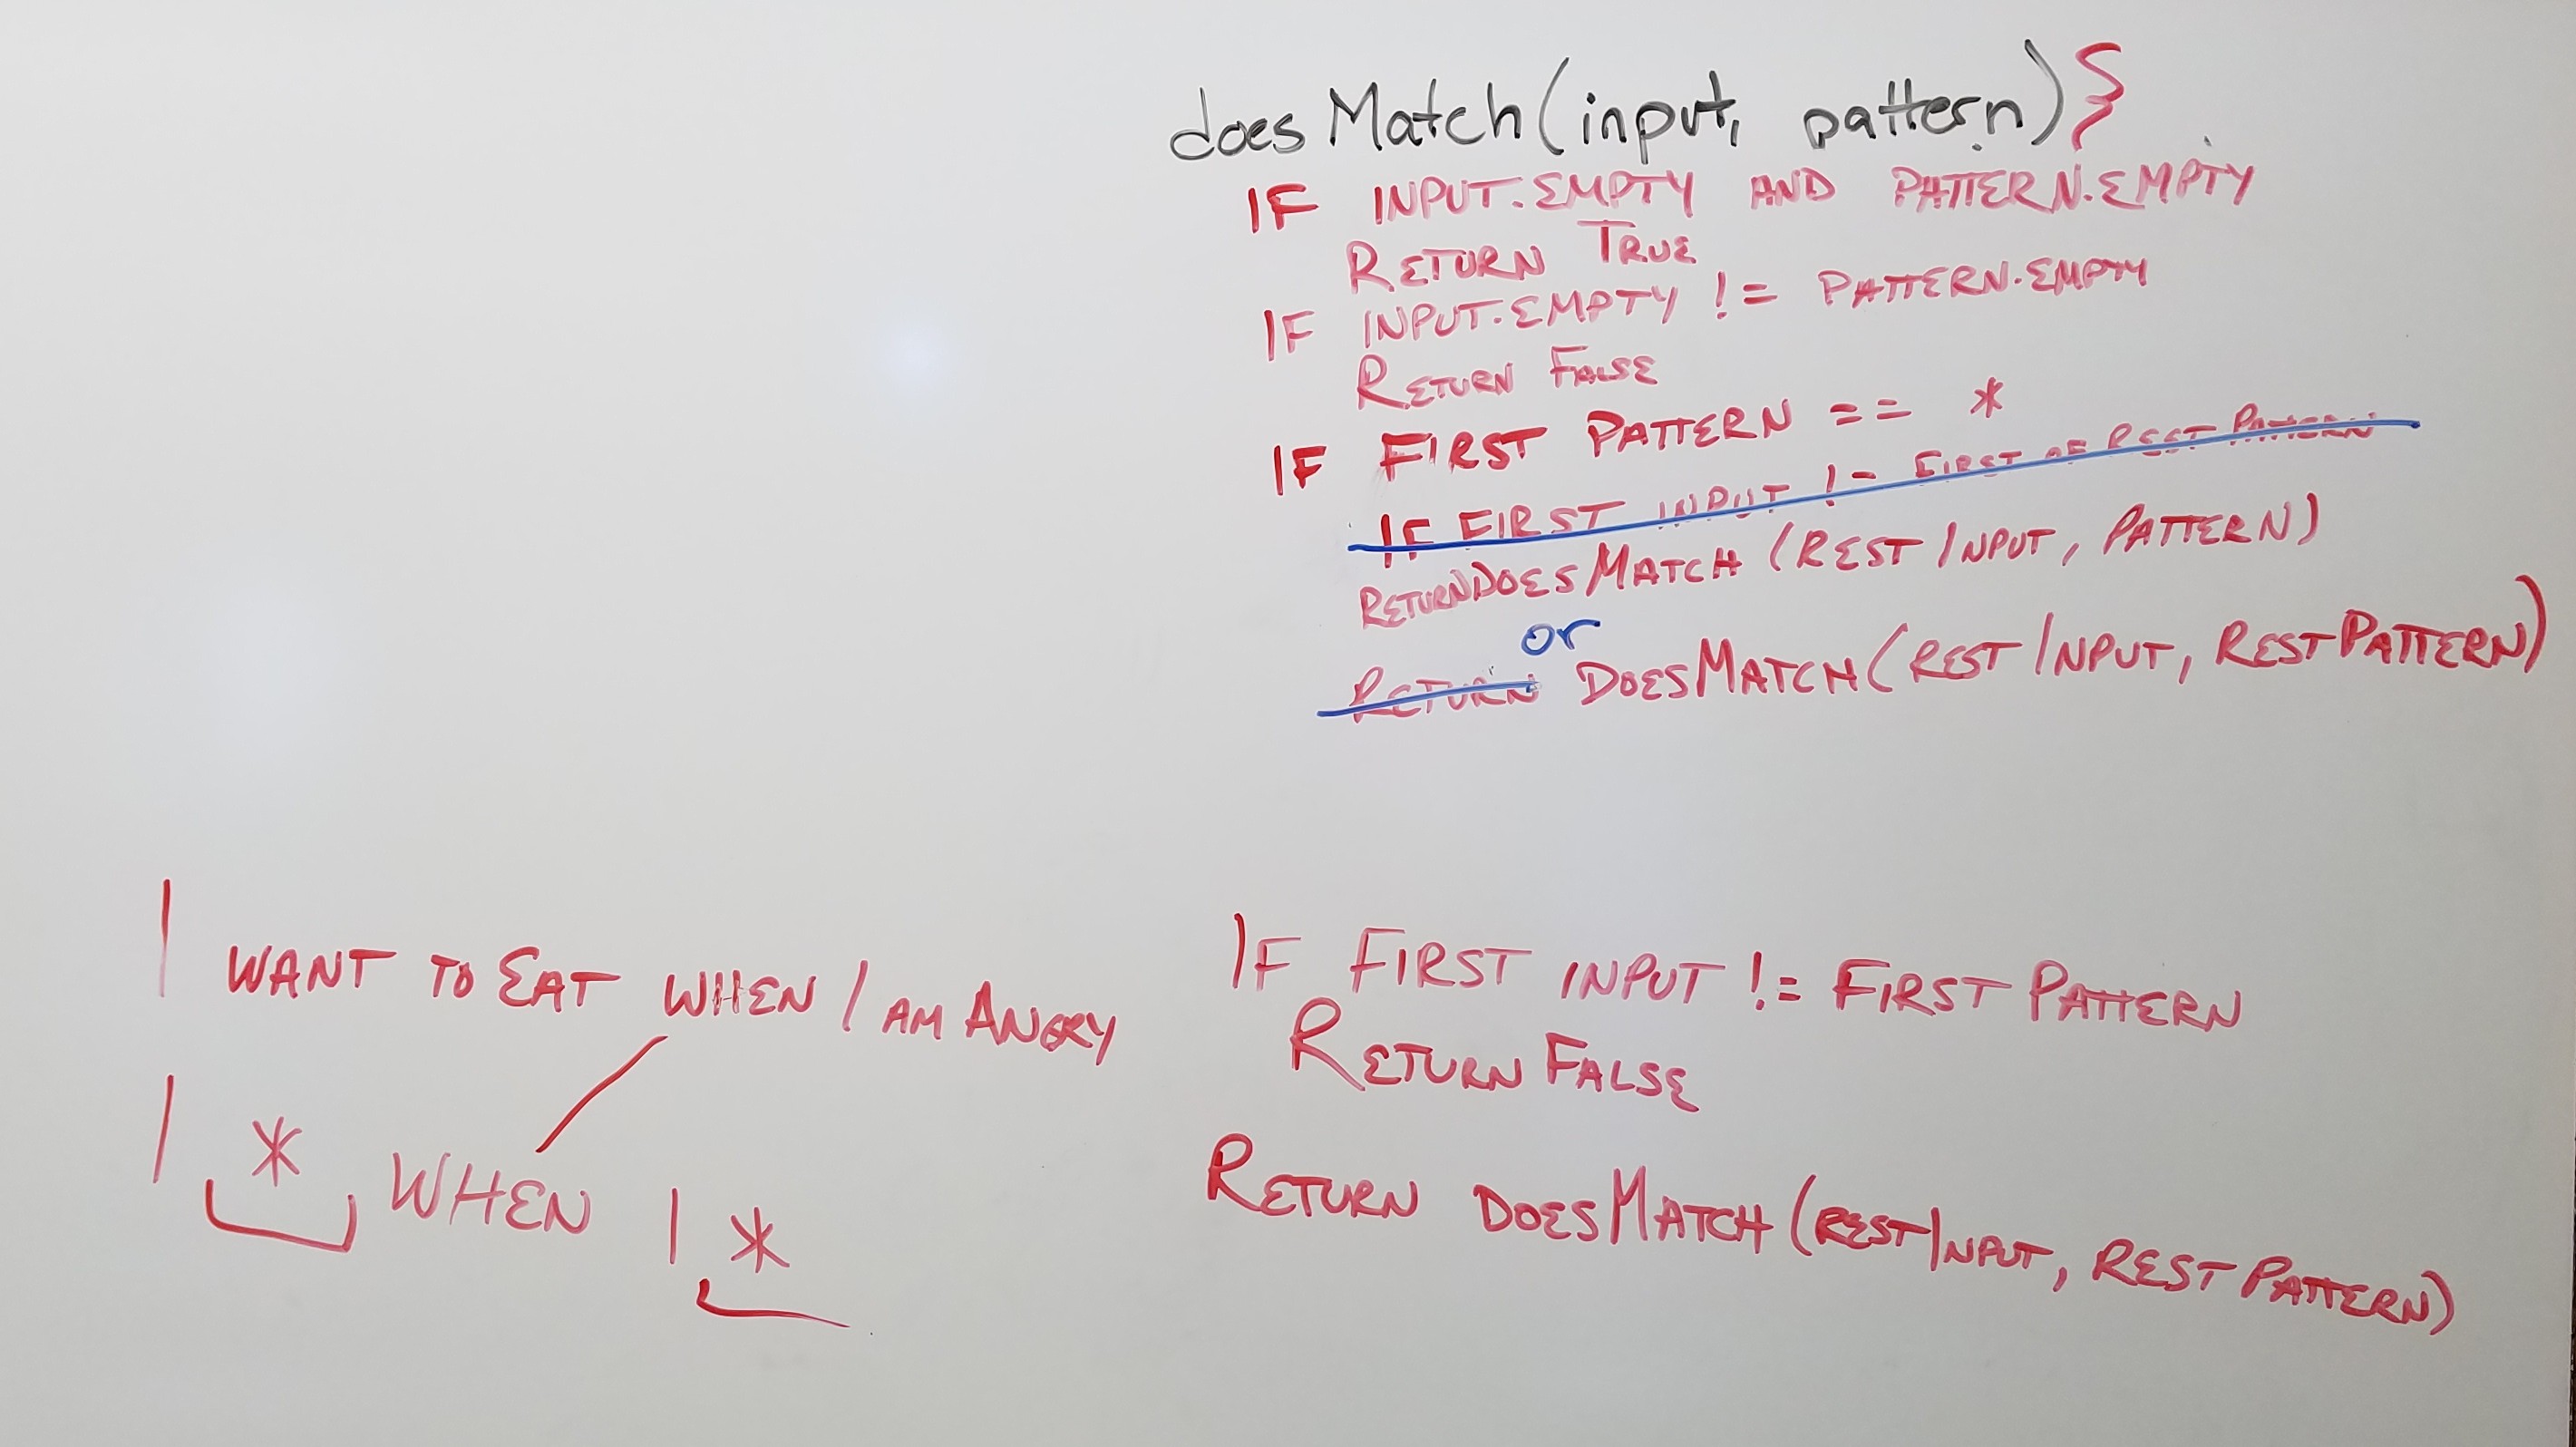 does Match(input, pattern) {
IF INPUT.EMPTY AND PATTERN.EMPTY
RETURN TRUE
IF INPUT.EMPTY != PATTERN.EMPTY
RETURN FALSE
IF FIRST PATTERN == *
IF FIRST INPUT != FIRST OF REST PATTERN
RETURN DOESMATCH (REST INPUT, PATTERN)
or
RETURN DOESMATCH (REST INPUT, REST PATTERN)
I WANT TO EAT WHEN I AM ANGRY
I * WHEN I *
IF FIRST INPUT != FIRST PATTERN
RETURN FALSE
RETURN DOESMATCH (REST INPUT, REST PATTERN)